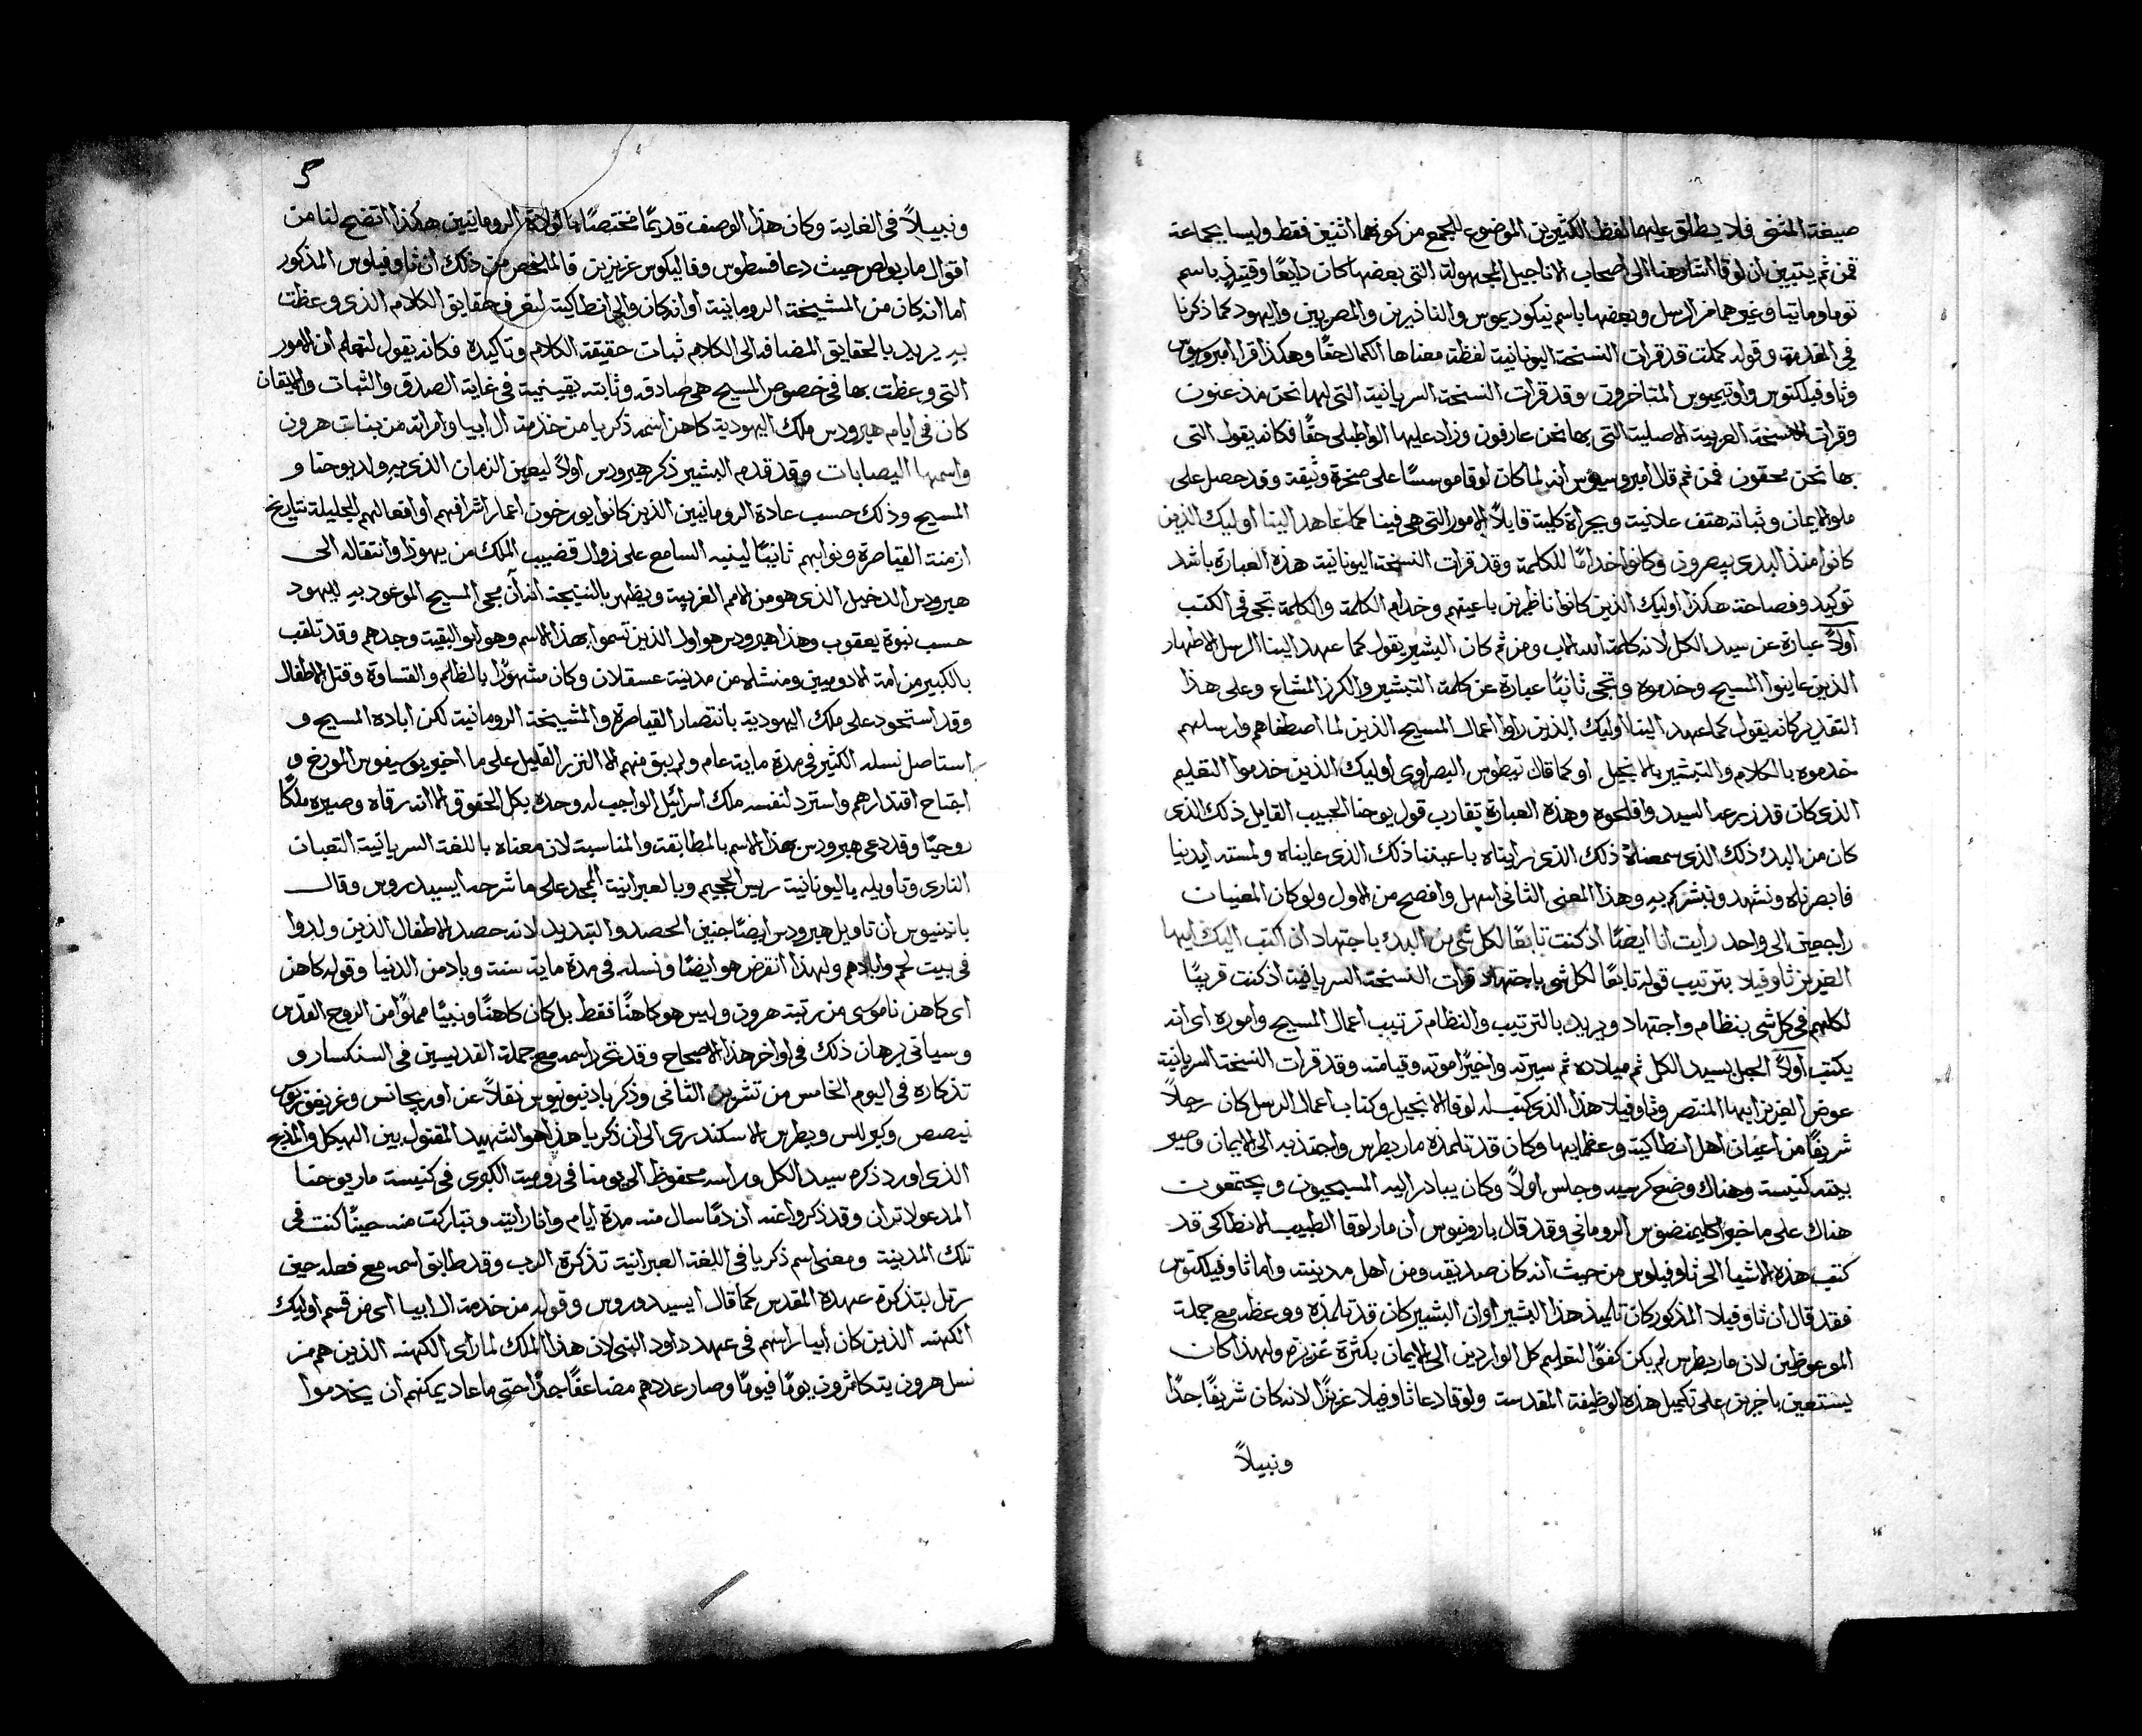 صيغة المثنى فلا يطلق عليهما لفظ الكثيرين الموضوع للجمع من كونهما اثنين فقط وليسا بجماعة
فمن ثم يتبين ان لوقا اشار هنا الى اصحاب الاناجيل المجهولة التى بعضها كان دايعًا وقتيذٍ باسم
توما وماتيا وغيرهما من الرسل وبعضها باسم نيكوديموس والناذيرين والمصريين واليهود كما ذكرنا
فى المقدمة وقوله كملت قد قرات النسخة اليونانية لفظة معناها الكمال حقًا وهكذا قرا امبروسيوس
وثاوفيلكتوس واوتيميوس المتاخرون وقد قرات النسخة السريانية التى لها نحن مذعنون
وقرات النسخة العربية الاصلية التى بها نحن عارفون وزاد عليها الواطيلى حقًا فكانه يقول التى
بها نحن محقون فمن ثم قال امبروسيوس انه لما كان لوقا موسسًا على صخرة وثيقة وقد حصل على
ملو الايمان وثباته هتف علانية وبجراة كلية قايلاً الامور التى هى فينا كما عاهد الينا اوليك الذين
كانوا منذ البدى يبصرون وكانوا خدامًا للكلمة وقد قرات النسخة اليونانية هذه العبارة باشد
توكيد وفصاحة هكذا اوليك الذين كانوا ناظرين باعينهم وخدام الكلمة والكلمة تجى فى الكتب
اولاً عبارة عن سيد الكل لانه كلمة الله الاب ومن ثم كان البشير يقول كما عهد الينا الرسل الاطهار
الذين عاينوا المسيح وخدموه وتجى ثانيًا عبارة عن كلمة التبشير والكرز المشاع وعلى هذا
التقدير كانه يقول كما عهد الينا اوليك الذين راوا اعمال المسيح الذين لما اصطفاهم وارسلهم
خدموه بالكلام والتبشير بالانجيل او كما قال تيطوس البصراوى اوليك الذين خدموا التعليم
الذى كان قد زرعه السيد وافلحوه وهذه العبارة تقارب قول يوحنا الحبيب القايل ذلك الذى
كان من البدء ذلك الذى سمعناه ذلك الذى رايناه باعيننا ذلك الذى عايناه ولمسته ايدينا
فابصرناه ونشهد ونبشركم به وهذا المعنى الثانى اسهل وافصح من الاول ولو كان المعنيان
راجعين الى واحد رايت انا ايضًا اذ كنت تابعًا لكل شى من البدء باجتهاد ان اكتب اليك ايها
العزيز ثاوفيلا بترتيب قوله تابعًا لكل شى باجتهاد قرات النسخة السريانية اذ كنت قريبًا
لكلهم فى كل شى بنظام واجتهاد ويريد بالترتيب والنظام ترتيب اعمال المسيح واموره اى انه
يكتب اولاً الحبل بسيد الكل ثم ميلاده ثم سيرته واخيرًا موته وقيامته وقد قرات النسخة السريانية
عوض العزيز ايها المنتصر وثاوفيلا هذا الذى كتب له لوقا الانجيل وكتاب اعمال الرسل كان رجلاً
شريفًا من اعيان اهل انطاكية وعظمايها وكان قد تلمذه مار بطرس واجتذبه الى الايمان وصير
بيته كنيسة وهناك وضع كرسيه وجلس اولاً وكان يبادر اليه المسيحيون ويجتمعون
هناك على ما خبر اكليمنضوس الرومانى وقد قال بارونيوس ان مار لوقا الطبيب الانطاكى قد
كتب هذه الاشيا الى ثاوفيلوس من حيث انه كان صديقه ومن اهل مدينته واما ثاوفيلكتوس
فقد قال ان ثاوفيلا المذكور كان تلميذ هذا البشير او ان البشير كان قد تلمذه ووعظه مع جملة
الموعوظين لان مار بطرس لم يكن كفوًا لتعليم كل الواردين الى الايمان بكثرة غزيرة ولهذا كان
يستعين باخرين على تكميل هذه الوظيفة المقدسة ولوقا دعا ثاوفيلا عزيزًا لانه كان شريفًا جدًا
ونبيلاً
5
ونبيلاً فى الغاية وكان هذا الوصف قديمًا مختصًا بالولاة الرومانيين هكذا اتضح لنا من
اقوال مار بولص حيث دعا فسطوس وفاليكوس عزيزين فالملخص من ذلك ان ثاوفيلوس المذكور
اما انه كان من المشيخة الرومانية او انه كان والى انطاكية لتعرف حقايق الكلام الذى وعظت
به يريد بالحقايق المضافه الى الكلام ثبات حقيقة الكلام وتاكيده فكانه يقول لتعلم ان الامور
التى وعظت بها فى خصوص المسيح هى صادقه وثابته يقينية فى غاية الصدق والثبات والايقان
كان فى ايام هيرودس ملك اليهودية كاهن اسمه ذكريا من خدمة ال ابيا وامراته من بنات هرون
واسمها اليصابات وقد قدم البشير ذكر هيرودس اولاً ليعين الزمان الذى به ولد يوحنا و
المسيح وذلك حسب عادة الرومانيين الذين كانوا يورخون اعمار اشرافهم او افعالهم الجليلة بتاريخ
ازمنة القياصرة ونوابهم ثانيًا لينبه السامع على زوال قضيب الملك من يهوذا وانتقاله الى
هيرودس الدخيل الذى هو من الامم الغريبة ويظهر بالنتيجة انه آن مجى المسيح الموعود به لليهود
حسب نبوة يعقوب وهذا هيرودس هو اول الذين تسموا بهذا الاسم وهو ابو البقية وجدهم وقد تلقب
بالكبير من امة الادوميين ومنشاه من مدينة عسقلان وكان مشهورًا بالظلم والقساوة وقتل الاطفال
وقد استحود على ملك اليهودية بانتصار القياصرة والمشيخة الرومانية لكن اباده المسيح و
استاصل نسله الكثير فى مدة ماية عام ولم يبق منهم الا النزر القليل على ما اخبر يوسيفوس المورخ و
اجتاح اقتدارهم واسترد لنفسه ملك اسرائيل الواجب له وحده بكل الحقوق الا انه رقاه وصيره ملكًا
روحيًا وقد دعى هيرودس بهذا الاسم بالمطابقة والمناسبة لان معناه باللغة السريانية التعبان
النارى وتاويله باليونانية ريس الجحيم وبالعبرانية المجد على ما شرحه ايسيدروس وقال
بانينيوس ان تاويل هيرودس ايضًا جنين الحصد والتبديد لانه حصد الاطفال الذين ولدوا
فى بيت لحم وابادهم ولهذا انقرض هو ايضًا ونسله فى مدة ماية سنة وباد من الدنيا وقوله كاهن
اى كاهن ناموسى من رتبة هرون وليس هو كاهنًا فقط بل كان كاهنًا ونبيًا مملوًا من الروح القدس
وسياتى برهان ذلك فى اواخر هذا الاصحاح وقد تحرر اسمه مع جملة القديسين فى السنكسار و
تذكاره فى اليوم الخامس من تشرين الثانى وذكر بارنيونيوس نقلاً عن اوريجانس وغريغوريوس
نيصص وكيرللس وبطرس الاسكندرى الى ان ذكريا هذا هو الشهيد المقتول بين الهيكل والمذبح
الذى اورد ذكره سيد الكل وراسه محفوظ الى يومنا فى رومية الكبرى فى كنيسة مار يوحنا
المدعو لاتران وقد ذكروا عنه ان دمًا سال منه مدة ايام وانا رايته وتباركت منه حينًا كنت فى
تلك المدينة ومعنى اسم ذكريا فى اللغة العبرانية تذكرة الرب وقد طابق اسمه مع فعله حين
رتل بتذكرة عهده المقدس كما قال ايسيدوروس وقوله من خدمة ال ابيا اى من قسم اوليك
الكهنه الذين كان ابيا راسهم فى عهد داود النبى لان هذا الملك لما راى الكهنه الذين هم من
نسل هرون يتكاثرون يومًا فيومًا وصار عددهم مضاعفًا جدًا حتى ما عاد يمكنهم ان يخدموا